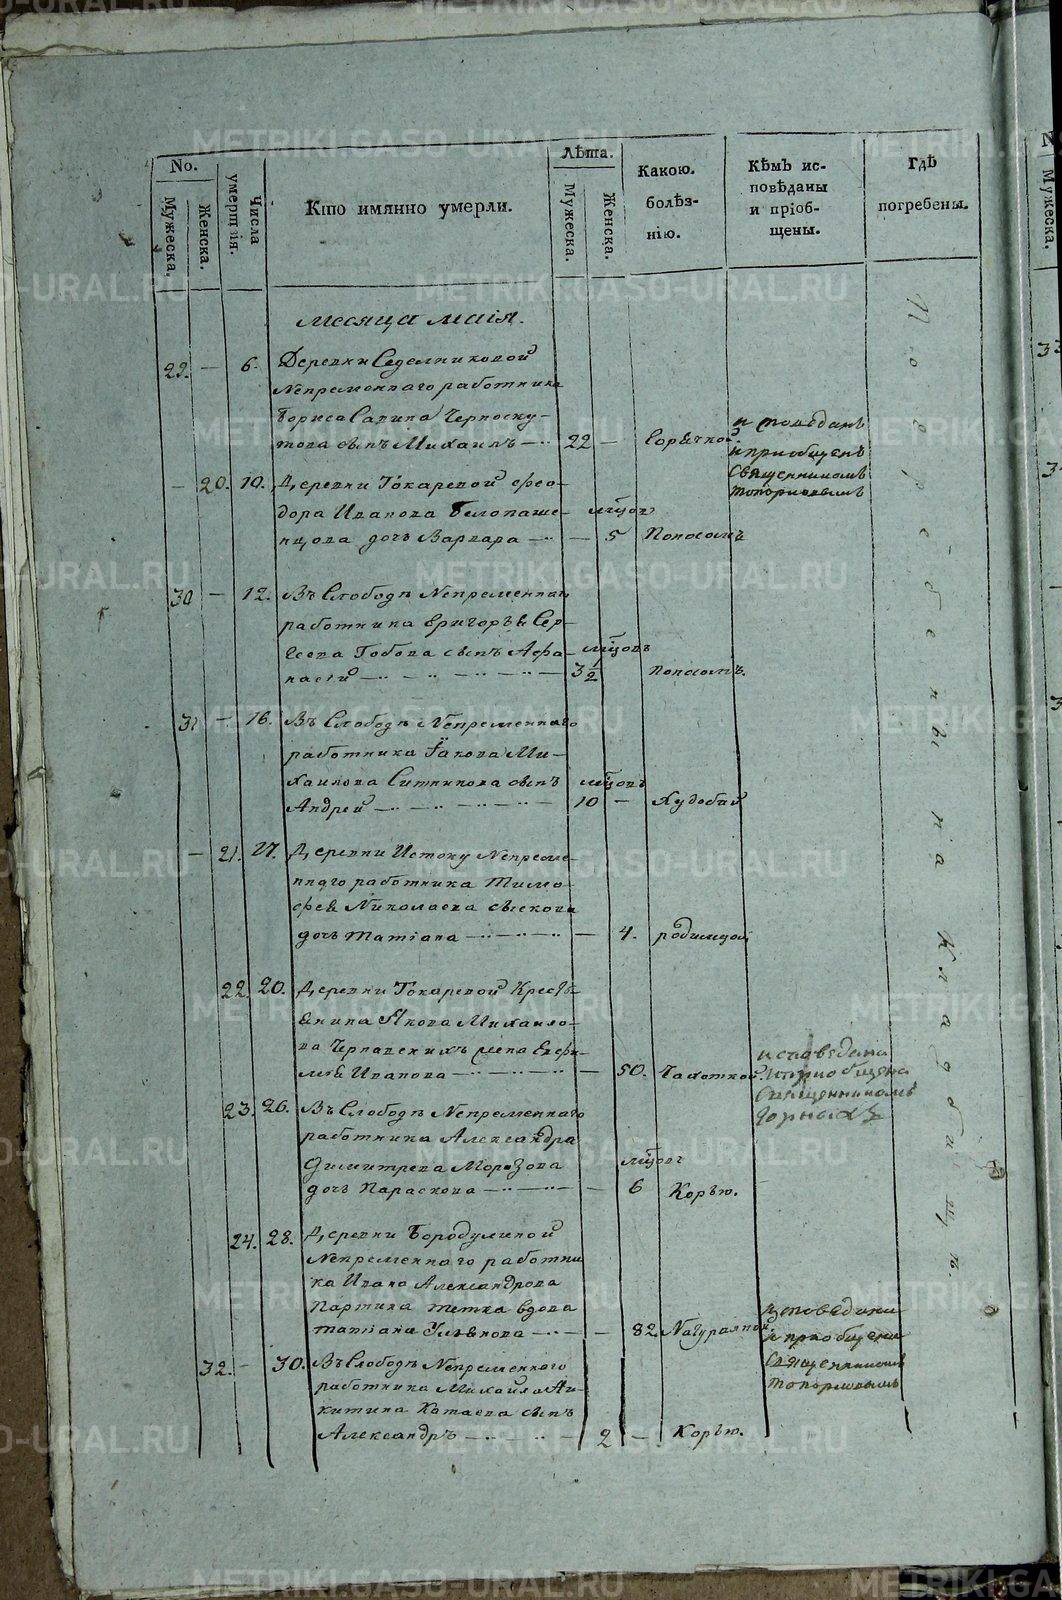 No.
Мужеска.
Женска.
Числа умершія.
Кто имянно умерли.
Лѣта.
Мужеска.
Женска.
Какою.
болѣз-
нію.
Кѣмъ ис-
повѣданы
и пріоб-
щены.
Гдѣ
погребены.
Месяца Маія.
22. — 6. Деревни Седелниковой
Непременнаго работника
Бориса Савина Черноску-
това сынъ Михаилъ — 22 — Горячкой
исповеданъ
и приобщенъ
Священникомъ
Топорковымъ
— 20. 10. Деревни Токаревой Фео-
дора Иванова Белопаше-
нцова дочь Варвара — — 5 Поносомъ
мѣсцовъ
30 — 12. Въ Слободѣ Непременнаго
работника Григорья Сер-
геева Гобова сынъ Афа-
насей — 3 1/2 поносомъ.
мѣсцовъ
31 — 16. Въ Слободѣ Непременнаго
работника Іакова Ми-
хаилова Ситникова сынъ
мѣсцовъ
Андрей — 10 — Худобой
— 21. 17. Деревни Истоку Непреме-
ннаго работника Тимо-
фея Николаева Сыскова
дочь Татіана — — 4. родимцой
22. 20. Деревни Токаревой Кресть-
янина Якова Михаило-
ва Чернавскихъ жена Евфи-
мья Иванова — — 50. Чахоткой.
исповедана
и приобщена
Священникомъ
23. 26. Въ Слободѣ Непременнаго
работника Александра
Димитрева Морозова
мѣсцовъ
дочь Параскова — — 6 Корью.
24. 28. Деревни Бородулиной
Непременнаго работни-
ка Ивана Александрова
Партина тетка вдова
Татіана Ульянова — — 82. Натуралной
исповедана
и приобщена
Священникомъ
Топорковымъ
32. — 30. Въ Слободѣ Непременнаго
работника Михайла Ни-
китина Катаева сынъ
Александръ — 2 — Корью.
Погребены на кладбищѣ.
METRIKI.GASO-URAL.RU